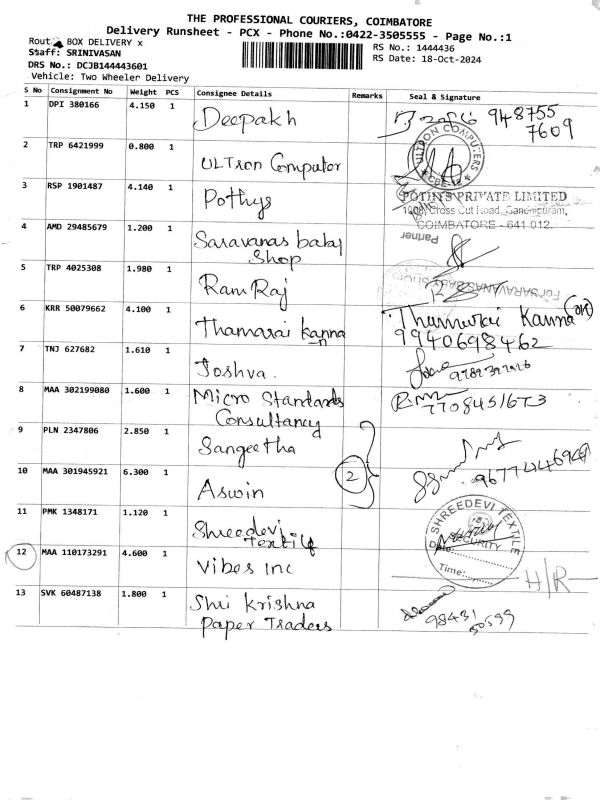 THE PROFESSIONAL COURIERS, COIMBATORE
Delivery Runsheet - PCX - Phone No.:0422-3505555 - Page No.:1
Route: BOX DELIVERY x
Staff: SRINIVASAN
DRS No.: DCJB144443601
Vehicle: Two Wheeler Delivery
RS No.: 1444436
RS Date: 18-Oct-2024
S No Consignment No Weight PCS Consignee Details Remarks Seal & Signature
1 DPI 380166 4.150 1 Deepakh 948755
7609
2 TRP 6421999 0.800 1 ULTron Computer
ULTRON COMPUTERS
3 RSP 1901487 4.140 1 Pothys
POTHYS PRIVATE LIMITED
Cross Cut Road, Gandhipuram,
COIMBATORE - 641 012.
4 AMD 29485679 1.200 1 Saravanas baby
Shop
Partner
5 TRP 4025308 1.980 1 Ram Raj
For SARAVANAS BABY SHOP
6 KRR 50079662 4.100 1 Thamarai kanna Thamarai Kanna
9940698462
7 TNJ 627682 1.610 1 Joshva.
8 MAA 302199080 1.600 1 Micro Standards
Consultancy
9 PLN 2347806 2.850 1 Sangeetha
2
10 MAA 301945921 6.300 1 Aswin
11 PMK 1348171 1.120 1 Shreedevi
Textile
SHREEDEVI TEXTILE
Date:
SECURITY
Time:
12 MAA 110173291 4.600 1 Vibes inc H/R
13 SVK 60487138 1.800 1 Shri Krishna
Paper Traders
98431
50599